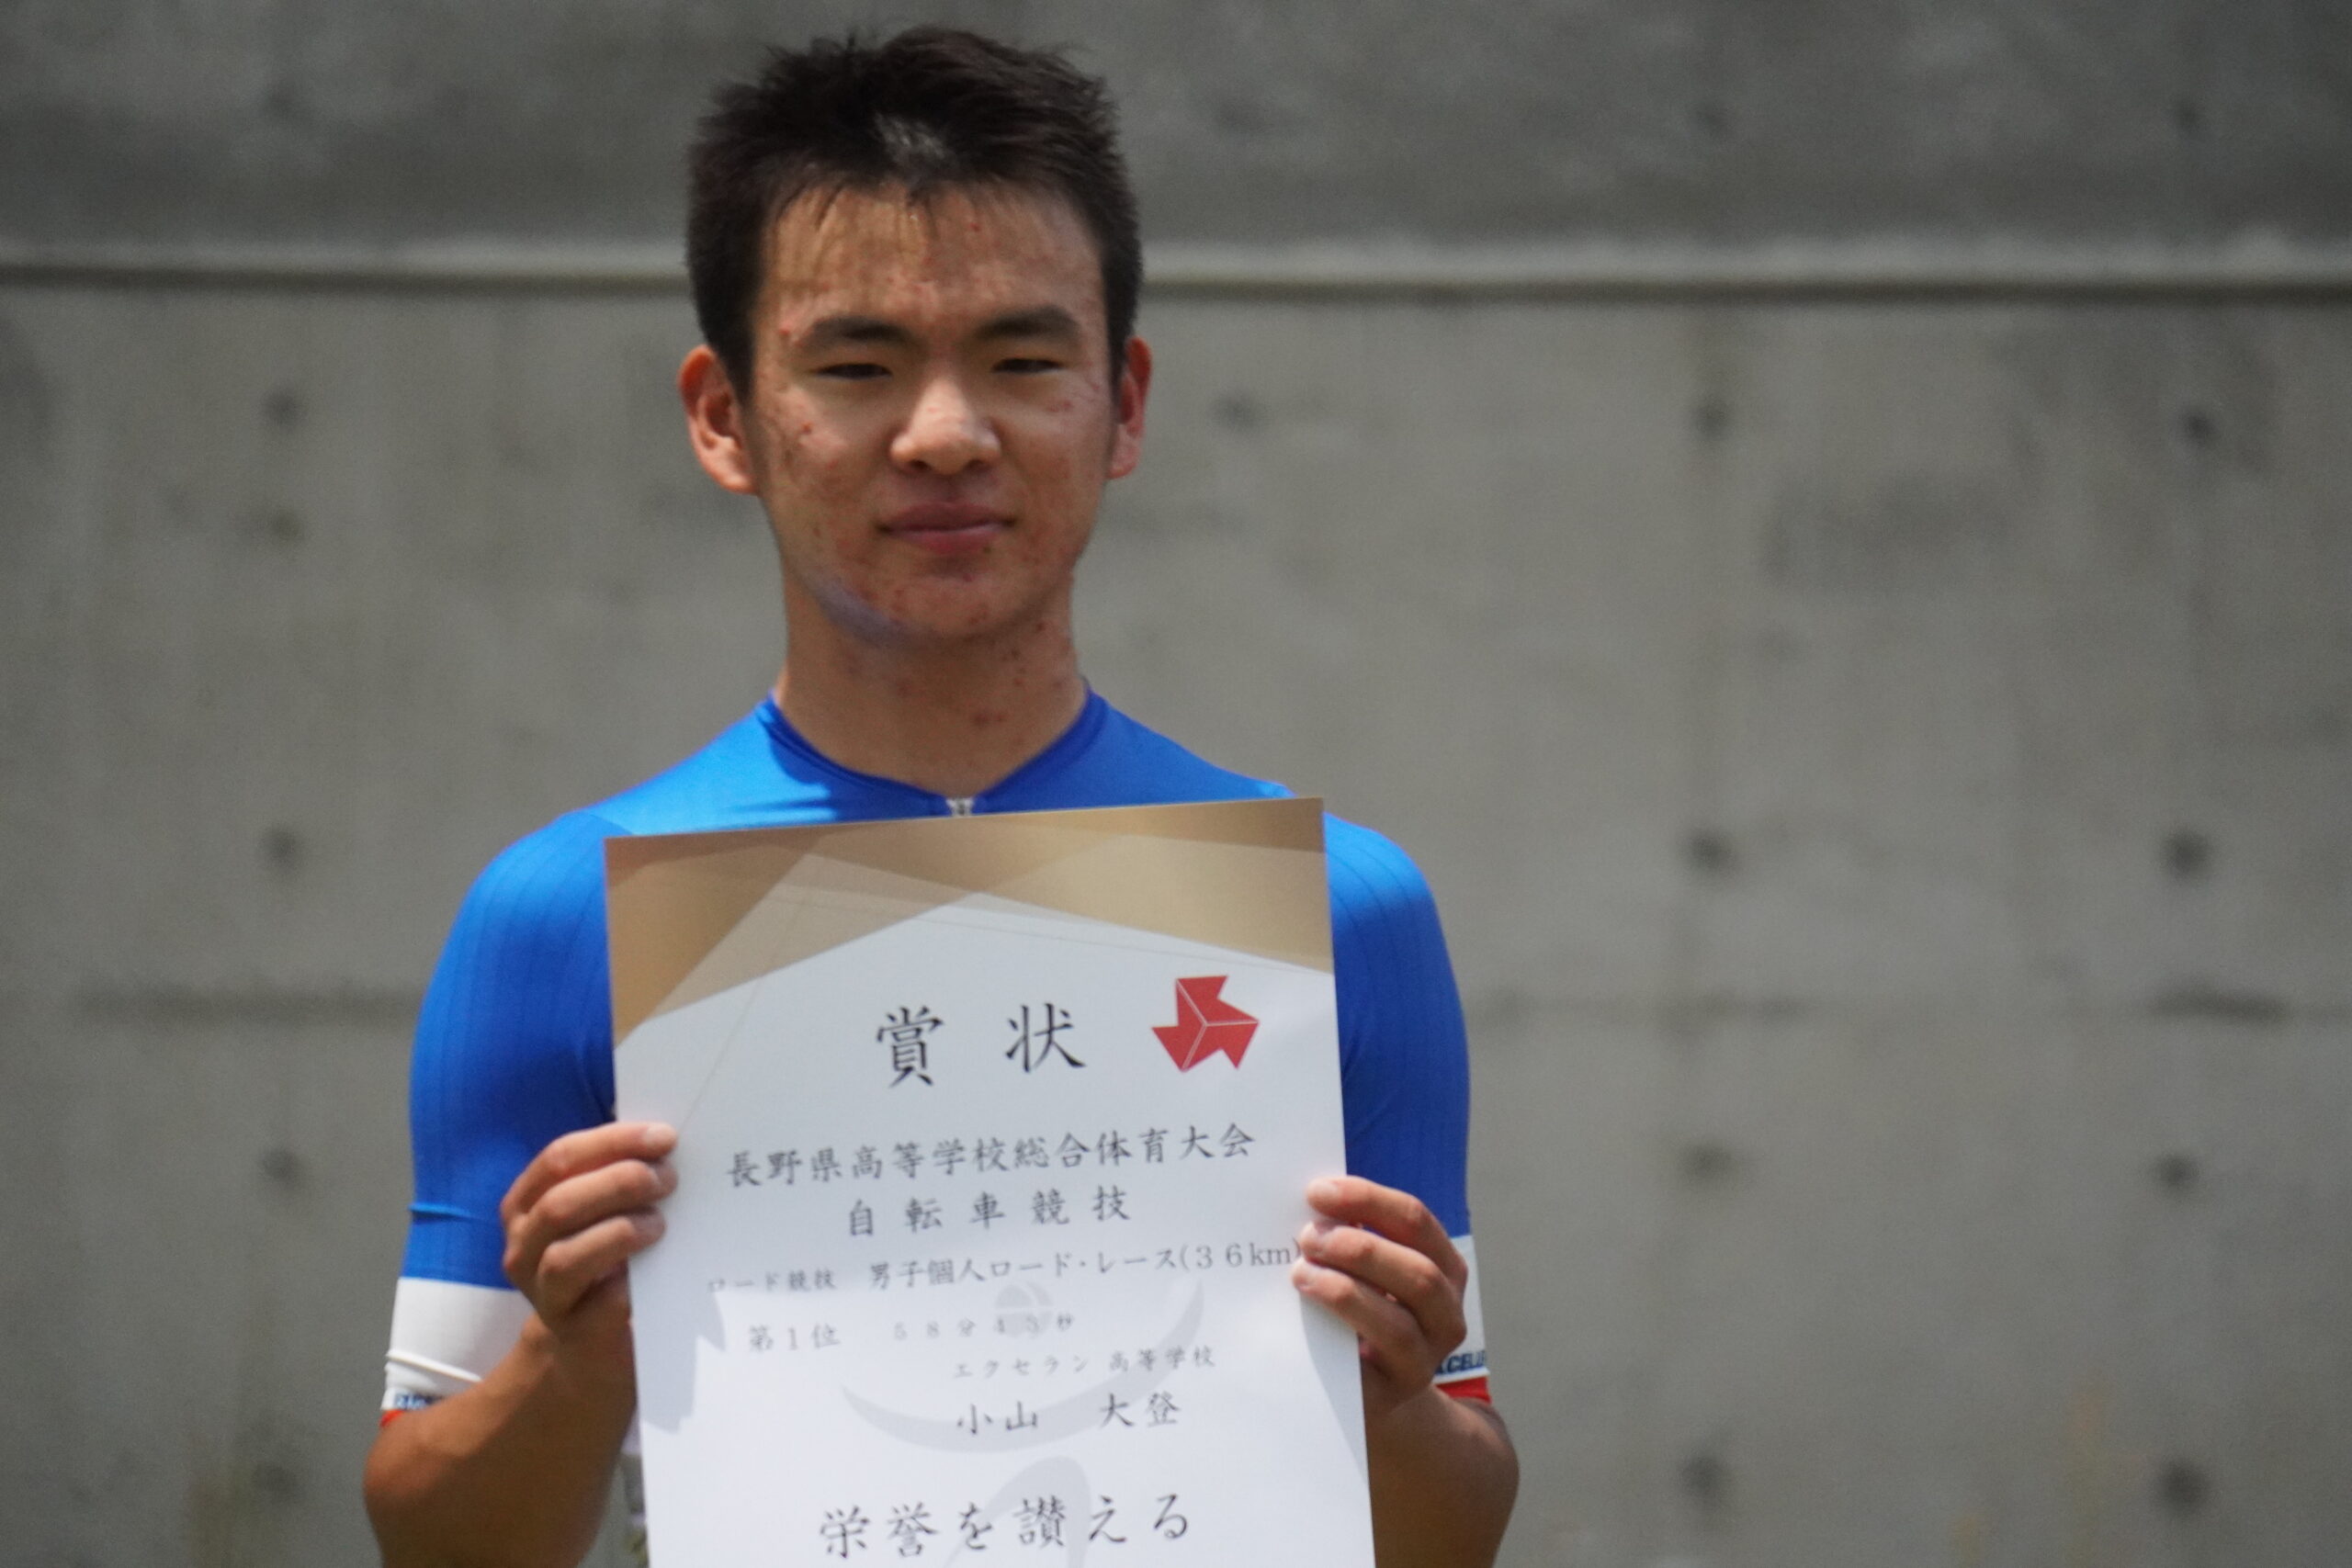 賞状
長野県高等学校総合体育大会
自転車競技
ロード競技 男子個人ロード・レース(36km)
第1位 58分43秒
エクセラン高等学校
小山 大登
栄誉を讃える